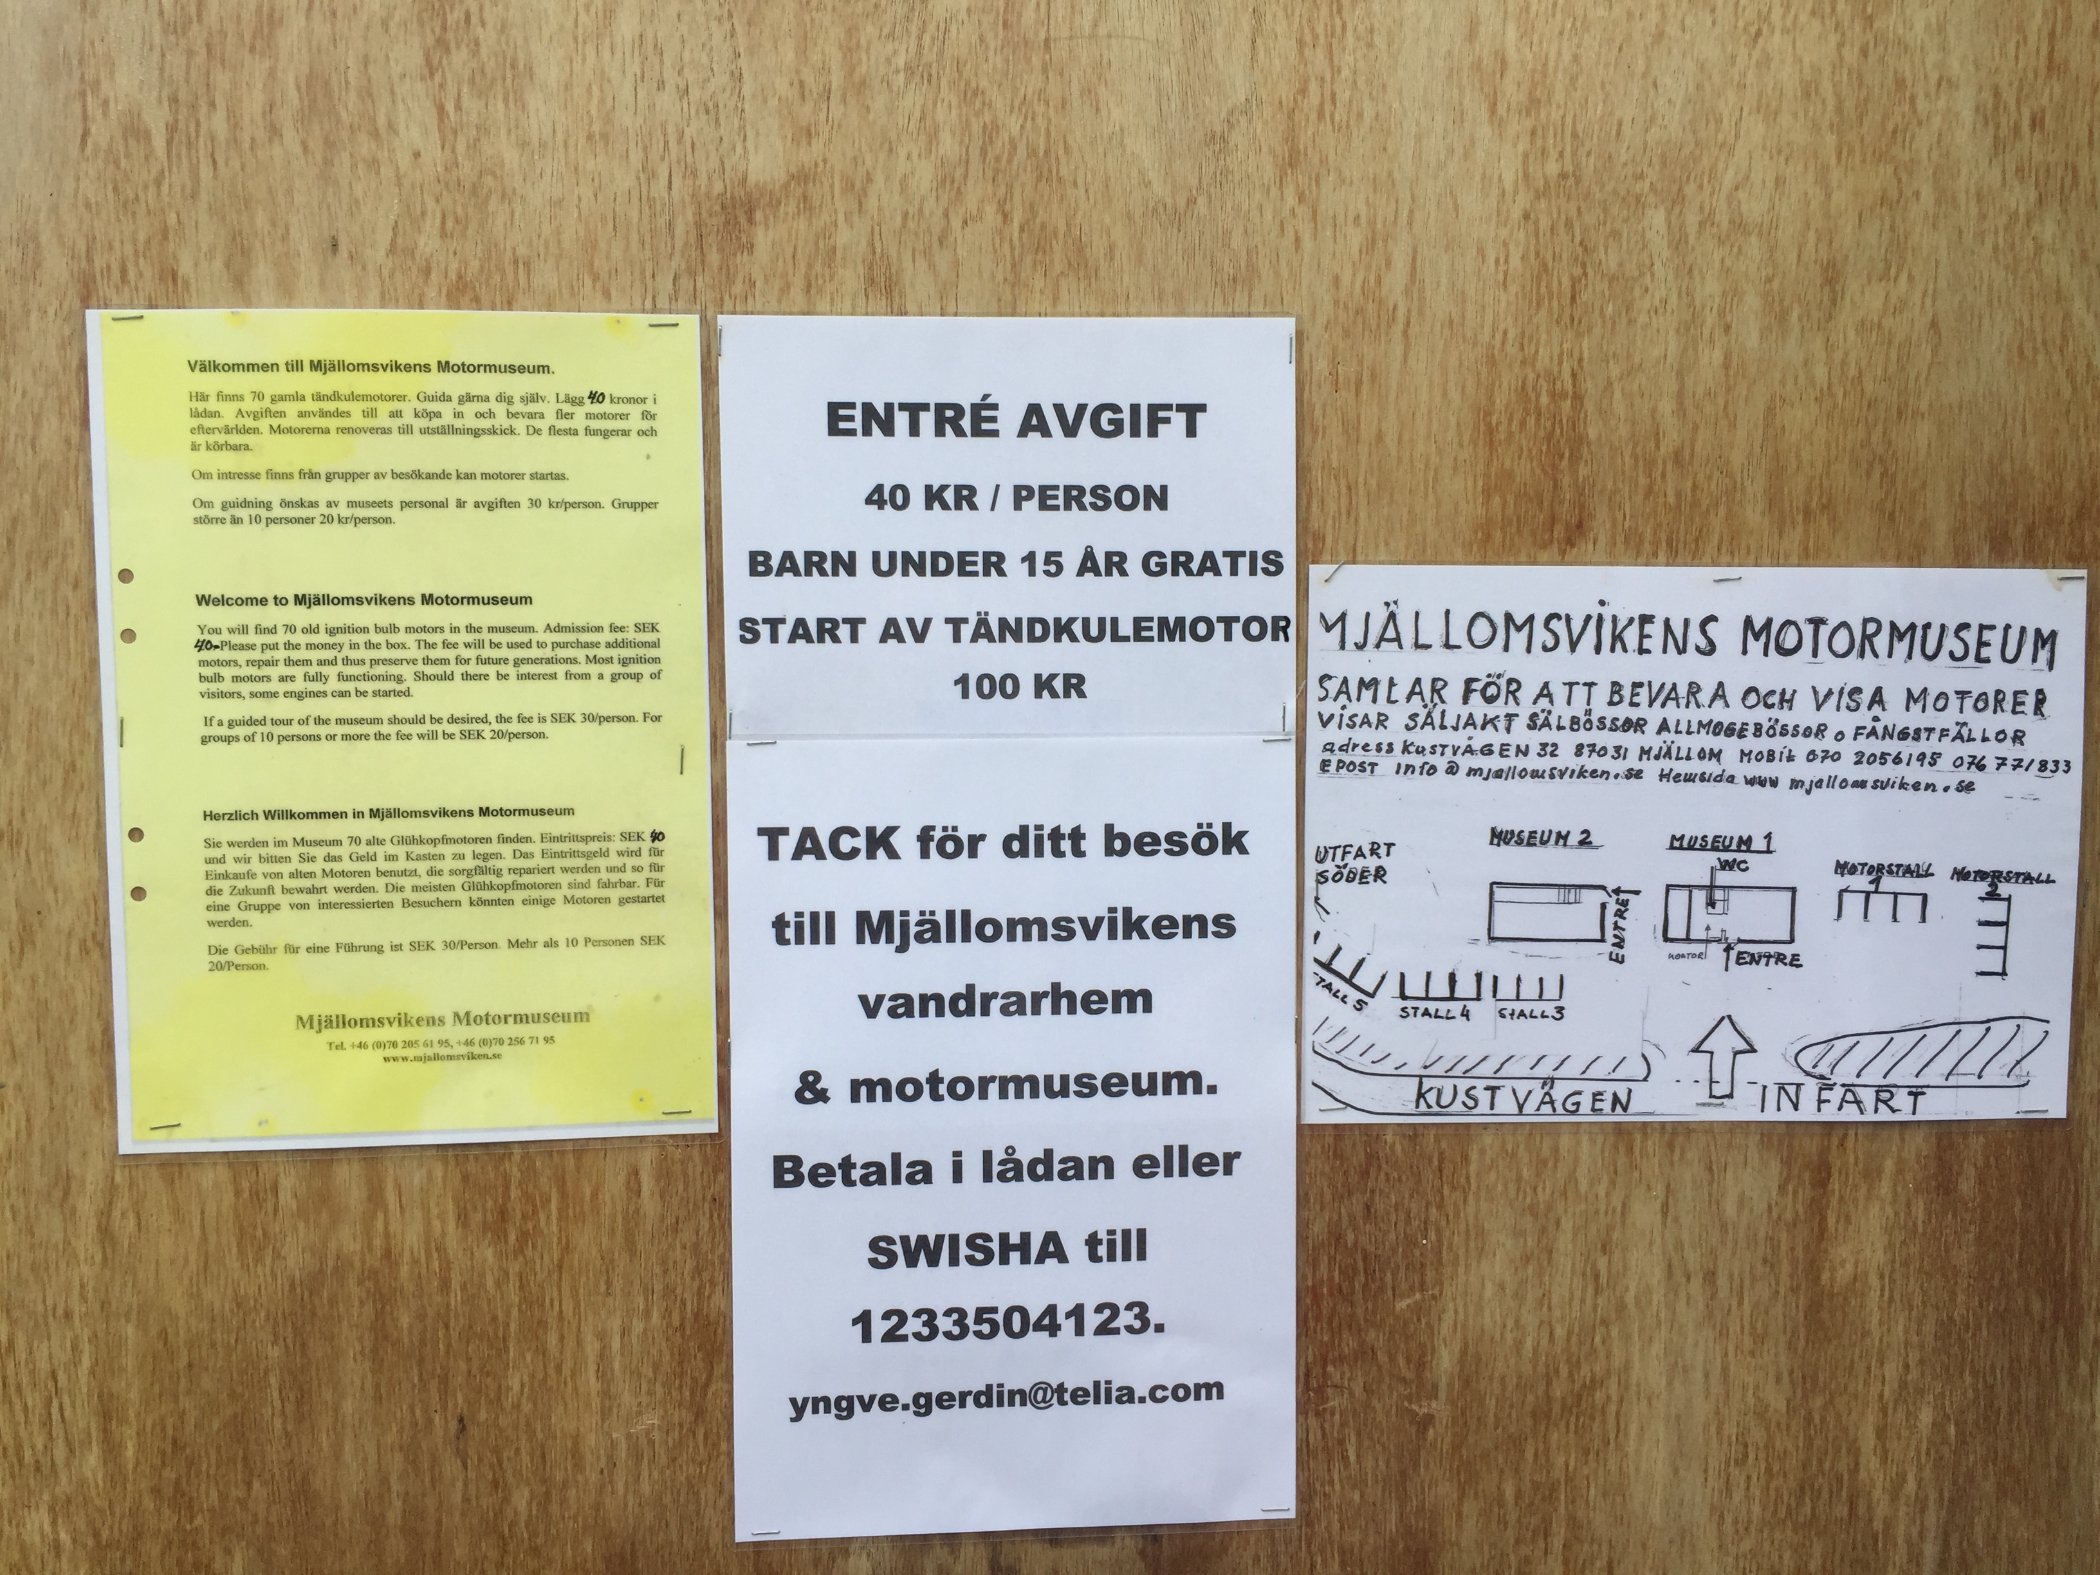 Välkommen till Mjällomsvikens Motormuseum.
Här finns 70 gamla tändkulemotorer. Guida gärna dig själv. Lägg 40 kronor i
lådan. Avgiften användes till att köpa in och bevara fler motorer för
eftervärlden. Motorerna renoveras till utställningsskick. De flesta fungerar och
är körbara.
Om intresse finns från grupper av besökande kan motorer startas.
Om guidning önskas av museets personal är avgiften 30 kr/person. Grupper
större än 10 personer 20 kr/person.
Welcome to Mjällomsvikens Motormuseum
You will find 70 old ignition bulb motors in the museum. Admission fee: SEK
40.-Please put the money in the box. The fee will be used to purchase additional
motors, repair them and thus preserve them for future generations. Most ignition
bulb motors are fully functioning. Should there be interest from a group of
visitors, some engines can be started.
If a guided tour of the museum should be desired, the fee is SEK 30/person. For
groups of 10 persons or more the fee will be SEK 20/person.
Herzlich Willkommen in Mjällomsvikens Motormuseum
Sie werden im Museum 70 alte Glühkopfmotoren finden. Eintrittspreis: SEK 40
und wir bitten Sie das Geld im Kasten zu legen. Das Eintrittsgeld wird für
Einkaufe von alten Motoren benutzt, die sorgfältig repariert werden und so für
die Zukunft bewahrt werden. Die meisten Glühkopfmotoren sind fahrbar. Für
eine Gruppe von interessierten Besuchern könnten einige Motoren gestartet
werden.
Die Gebühr für eine Führung ist SEK 30/Person. Mehr als 10 Personen SEK
20/Person.
Mjällomsvikens Motormuseum
Tel. +46 (0)70 205 61 95, +46 (0)70 256 71 95
www.mjallomsviken.se
ENTRÉ AVGIFT
40 KR / PERSON
BARN UNDER 15 ÅR GRATIS
START AV TÄNDKULEMOTOR
100 KR
TACK för ditt besök
till Mjällomsvikens
vandrarhem
& motormuseum.
Betala i lådan eller
SWISHA till
1233504123.
yngve.gerdin@telia.com
MJÄLLOMSVIKENS MOTORMUSEUM
SAMLAR FÖR ATT BEVARA OCH VISA MOTORER
VISAR SÄLJAKT SÄLBÖSSOR ALLMOGEBÖSSOR o FÅNGSTFÄLLOR
adress KUSTVÄGEN 32 87031 MJÄLLOM MOBIL 070 2056195 076 771833
EPOST info@mjallomsviken.se Hemsida www mjallomsviken.se
UTFART
SÖDER
MUSEUM 2
ENTRE
MUSEUM 1
WC
KONTOR
ENTRE
MOTORSTALL
1
MOTORSTALL
2
TALL 5
STALL 4
STALL 3
KUSTVÄGEN
INFART